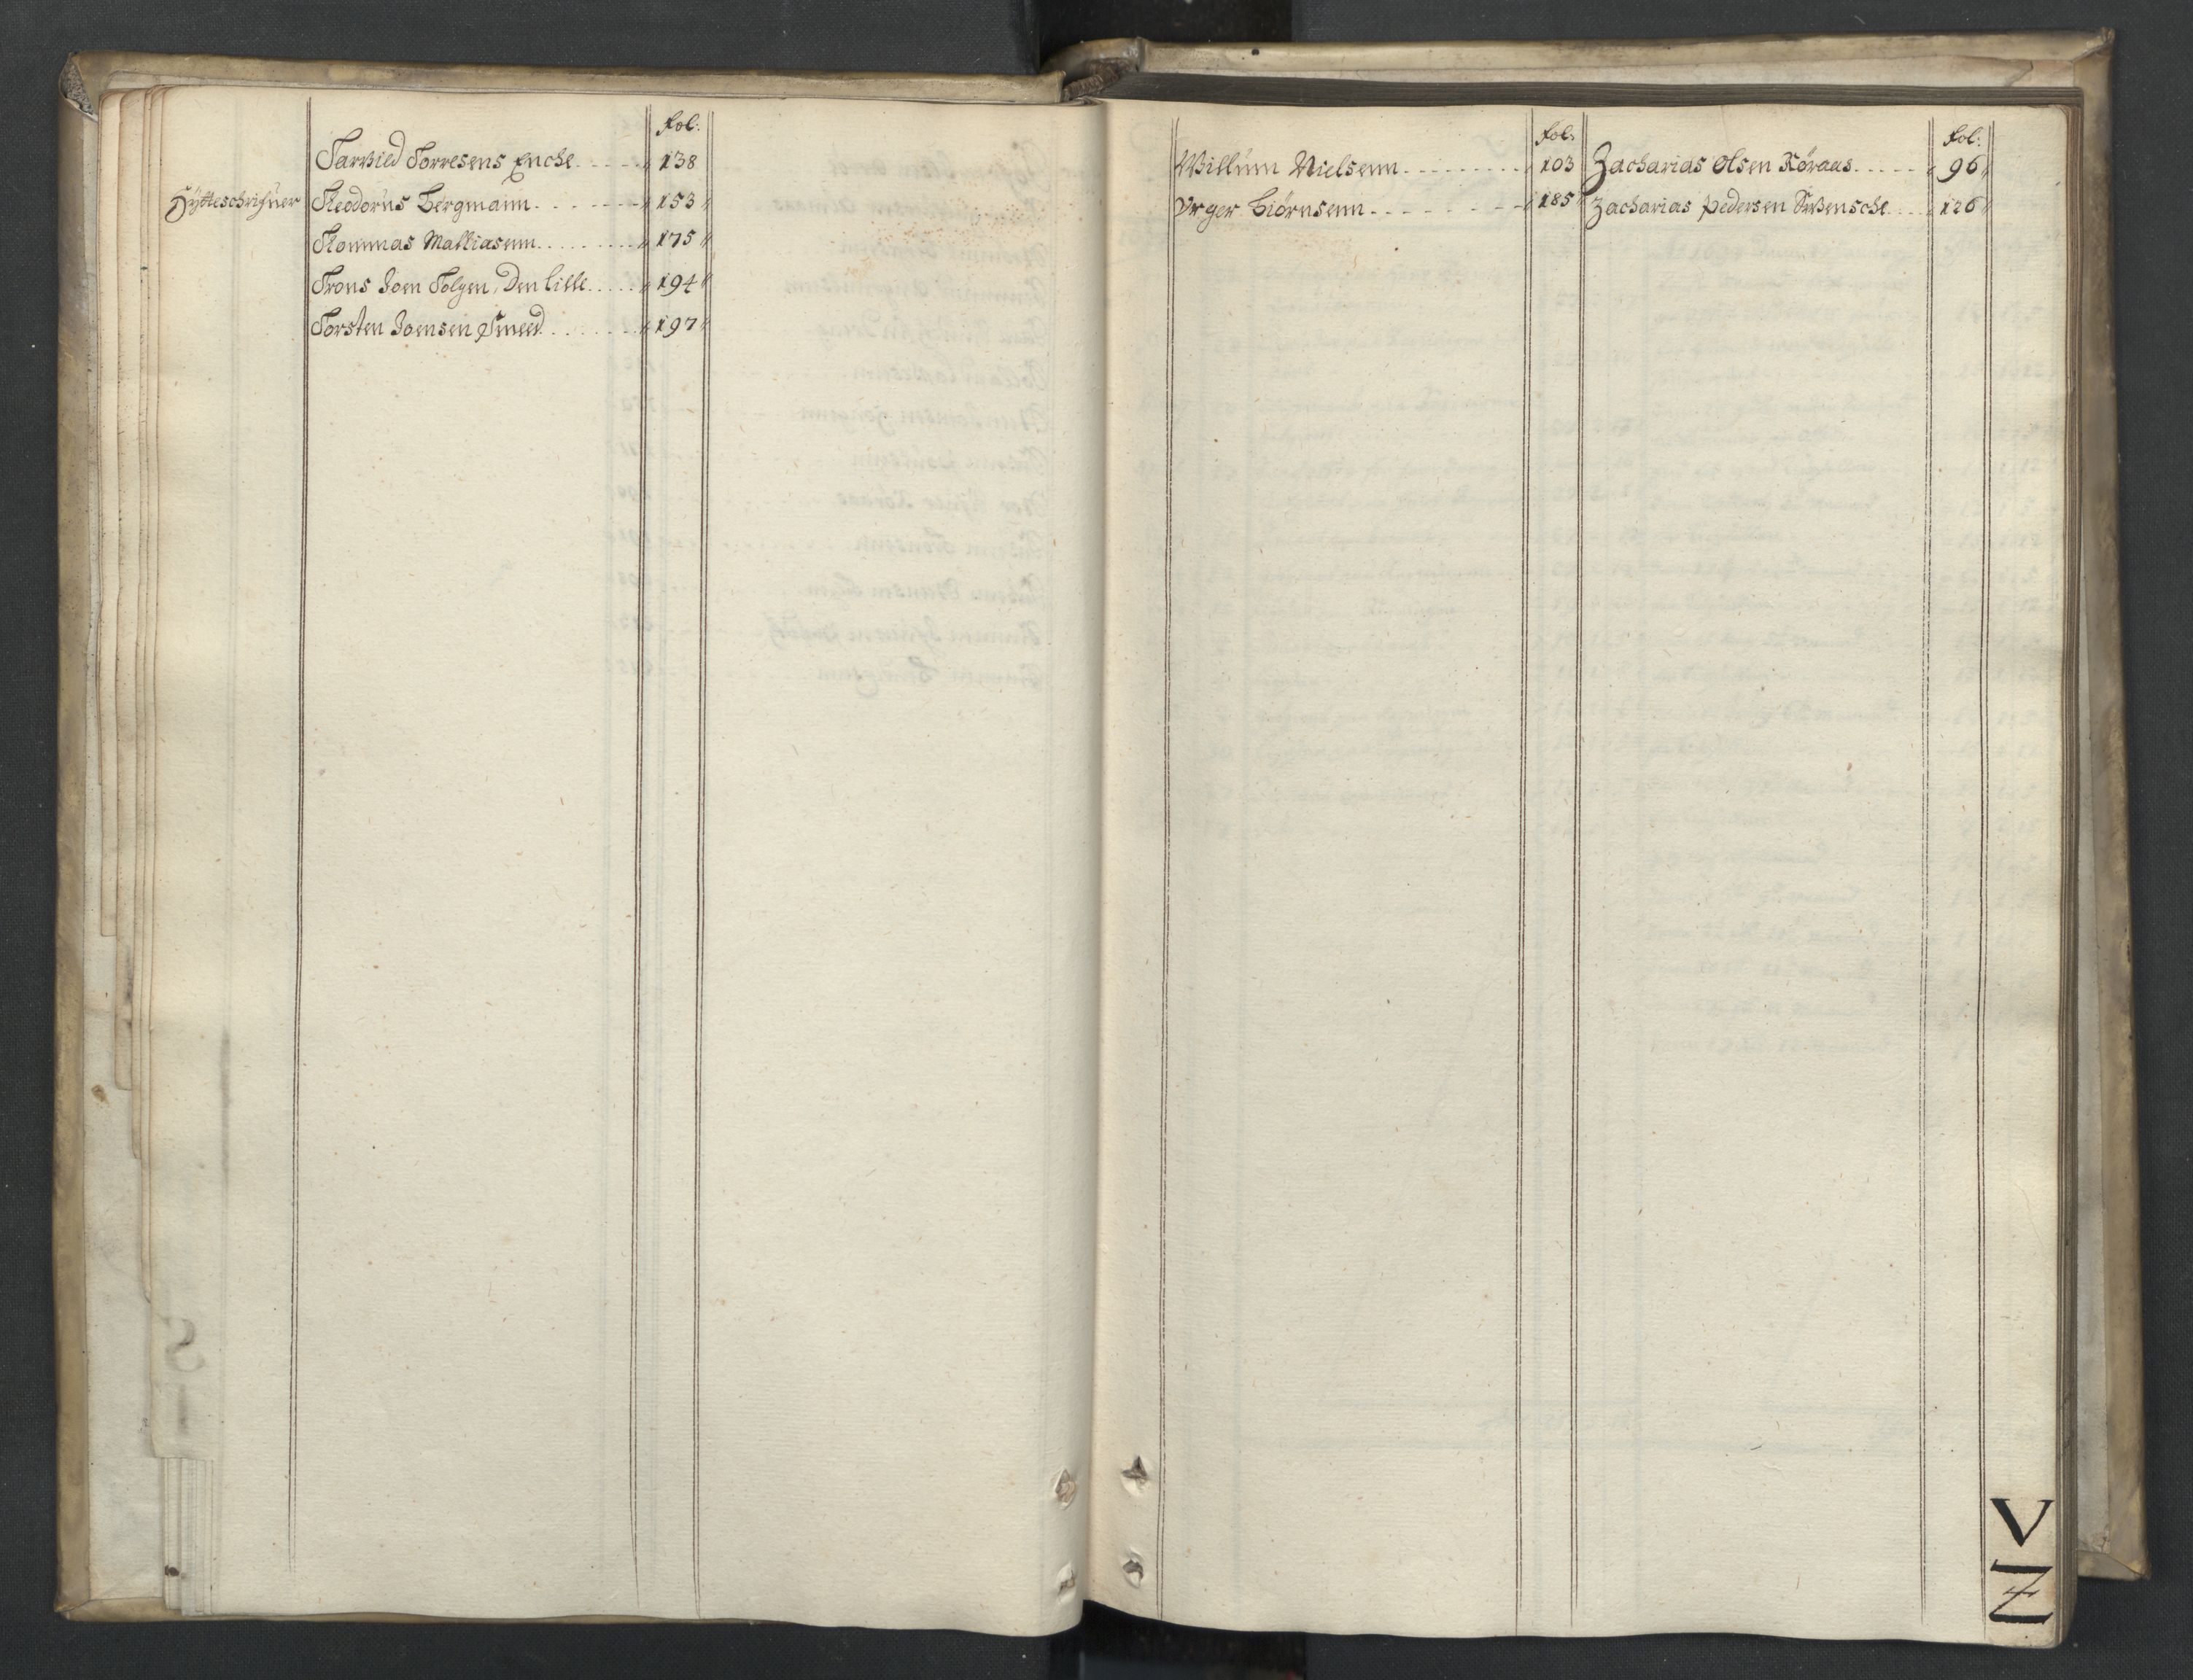 Fol:
Tarvild Torresens Enche 138
Hÿtteschrifuer Theodorus Bergmann 153
Thommas Mathiasenn 175
Trons Joen Tolgen, Den lille 194
Torsten Joensen Smeed 197
Fol:
Willum Nielsenn 103
Yrger Biörnsenn 185
Fol:
Zacharias Olsen Röraas 96
Zacharias Pedersen Swensche 126
V
Z